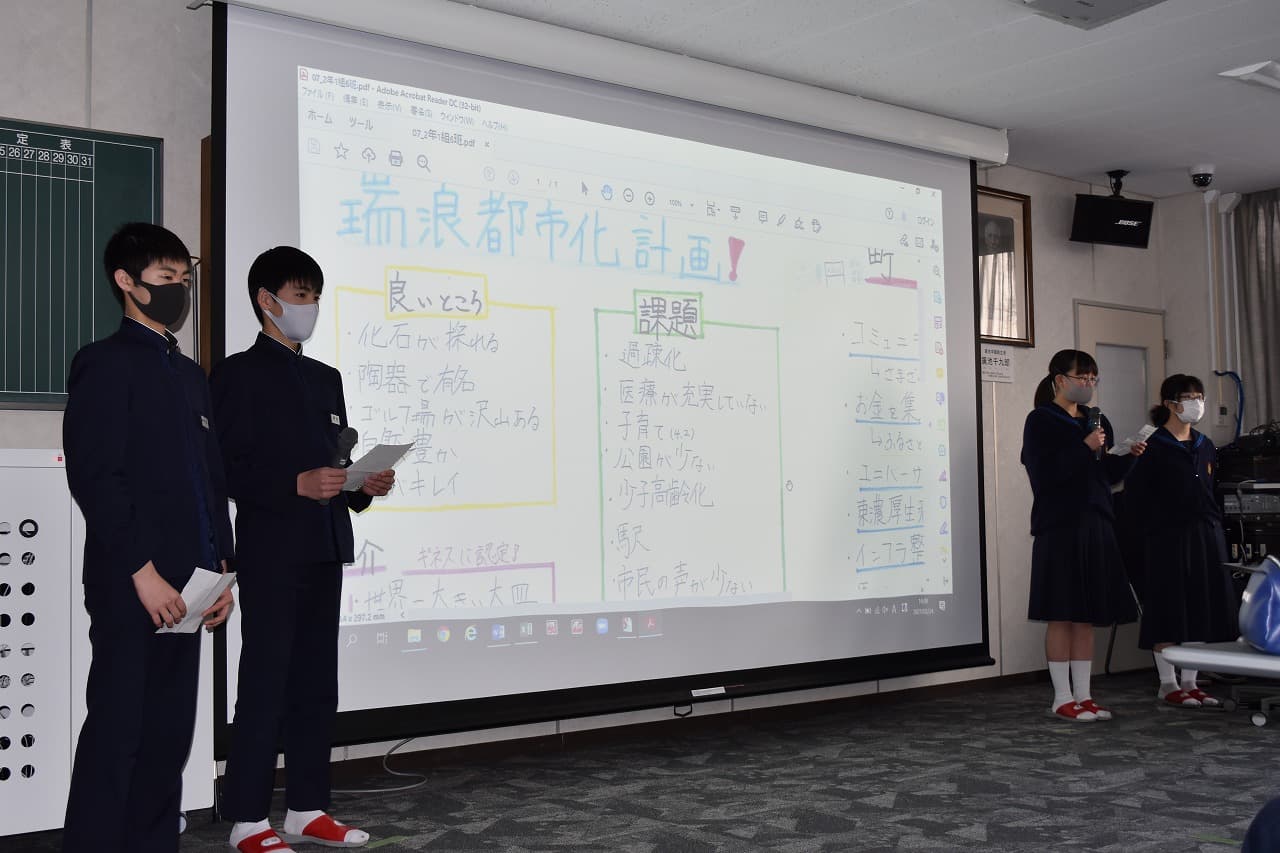 定 表
26 27 28 29 30 31
07_2年1組6班.pdf - Adobe Acrobat Reader DC (32-bit)
ファイル(F) 編集(E) 表示(V) 署名(S) ウィンドウ(W) ヘルプ(H)
ホーム ツール 07_2年1組6班.pdf ×
1 / 1 100%
ログイン
瑞浪都市化計画!
町
良いところ
・化石が採れる
・陶器で有名
・ゴルフ場が沢山ある
自然豊か
キレイ
介 ギネスに認定!
・世界一大きい大皿
297.2 mm
課題
・過疎化
・医療が充実していない
・子育て(4.2)
・公園が少ない
・少子高齢化
・駅沢
・市民の声が少ない
・コミュニ
↳さまざ
・お金を集
↳ふるさと
・ユニバーサ
・東濃厚生
・インフラ整
BOSE